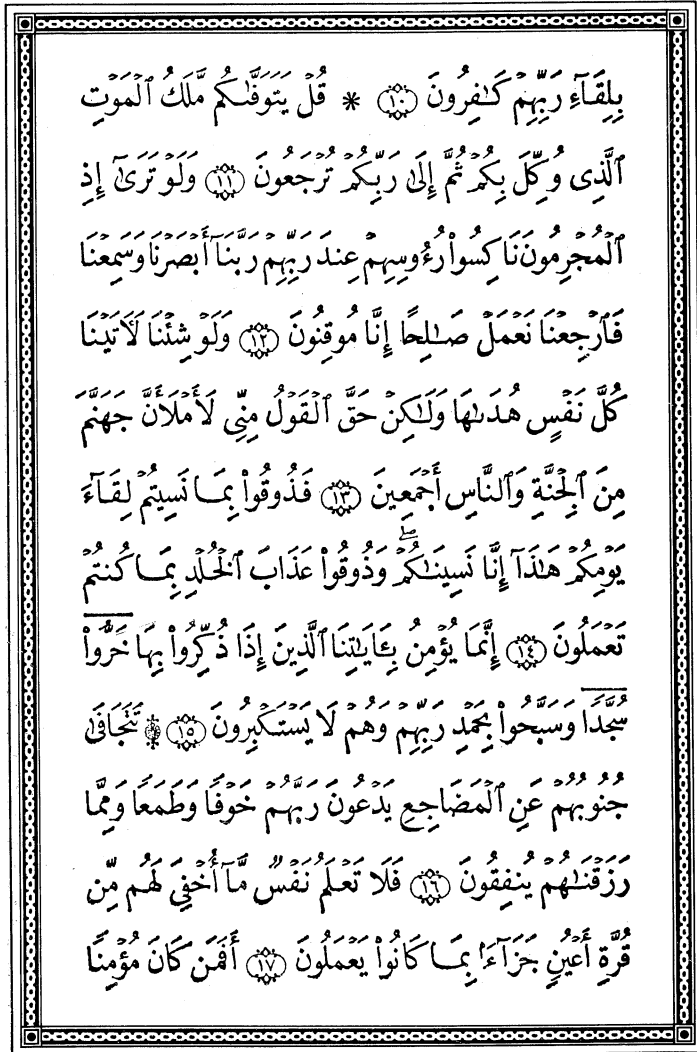 بِلِقَآءِ رَبِّهِمْ كَـٰفِرُونَ ١٠ * قُلْ يَتَوَفَّىٰكُم مَّلَكُ ٱلْمَوْتِ
ٱلَّذِى وُكِّلَ بِكُمْ ثُمَّ إِلَىٰ رَبِّكُمْ تُرْجَعُونَ ١١ وَلَوْ تَرَىٰٓ إِذِ
ٱلْمُجْرِمُونَ نَاكِسُوا۟ رُءُوسِهِمْ عِندَ رَبِّهِمْ رَبَّنَآ أَبْصَرْنَا وَسَمِعْنَا
فَٱرْجِعْنَا نَعْمَلْ صَـٰلِحًا إِنَّا مُوقِنُونَ ١٢ وَلَوْ شِئْنَا لَـَٔاتَيْنَا
كُلَّ نَفْسٍ هُدَىٰهَا وَلَـٰكِنْ حَقَّ ٱلْقَوْلُ مِنِّى لَأَمْلَأَنَّ جَهَنَّمَ
مِنَ ٱلْجِنَّةِ وَٱلنَّاسِ أَجْمَعِينَ ١٣ فَذُوقُوا۟ بِمَا نَسِيتُمْ لِقَآءَ
يَوْمِكُمْ هَـٰذَآ إِنَّا نَسِينَـٰكُمْ ۖ وَذُوقُوا۟ عَذَابَ ٱلْخُلْدِ بِمَا كُنتُمْ
تَعْمَلُونَ ١٤ إِنَّمَا يُؤْمِنُ بِـَٔايَـٰتِنَا ٱلَّذِينَ إِذَا ذُكِّرُوا۟ بِهَا خَرُّوا۟
سُجَّدًا وَسَبَّحُوا۟ بِحَمْدِ رَبِّهِمْ وَهُمْ لَا يَسْتَكْبِرُونَ ١٥ ۩ تَتَجَافَىٰ
جُنُوبُهُمْ عَنِ ٱلْمَضَاجِعِ يَدْعُونَ رَبَّهُمْ خَوْفًا وَطَمَعًا وَمِمَّا
رَزَقْنَـٰهُمْ يُنفِقُونَ ١٦ فَلَا تَعْلَمُ نَفْسٌ مَّآ أُخْفِىَ لَهُم مِّن
قُرَّةِ أَعْيُنٍ جَزَآءًۢ بِمَا كَانُوا۟ يَعْمَلُونَ ١٧ أَفَمَن كَانَ مُؤْمِنًا